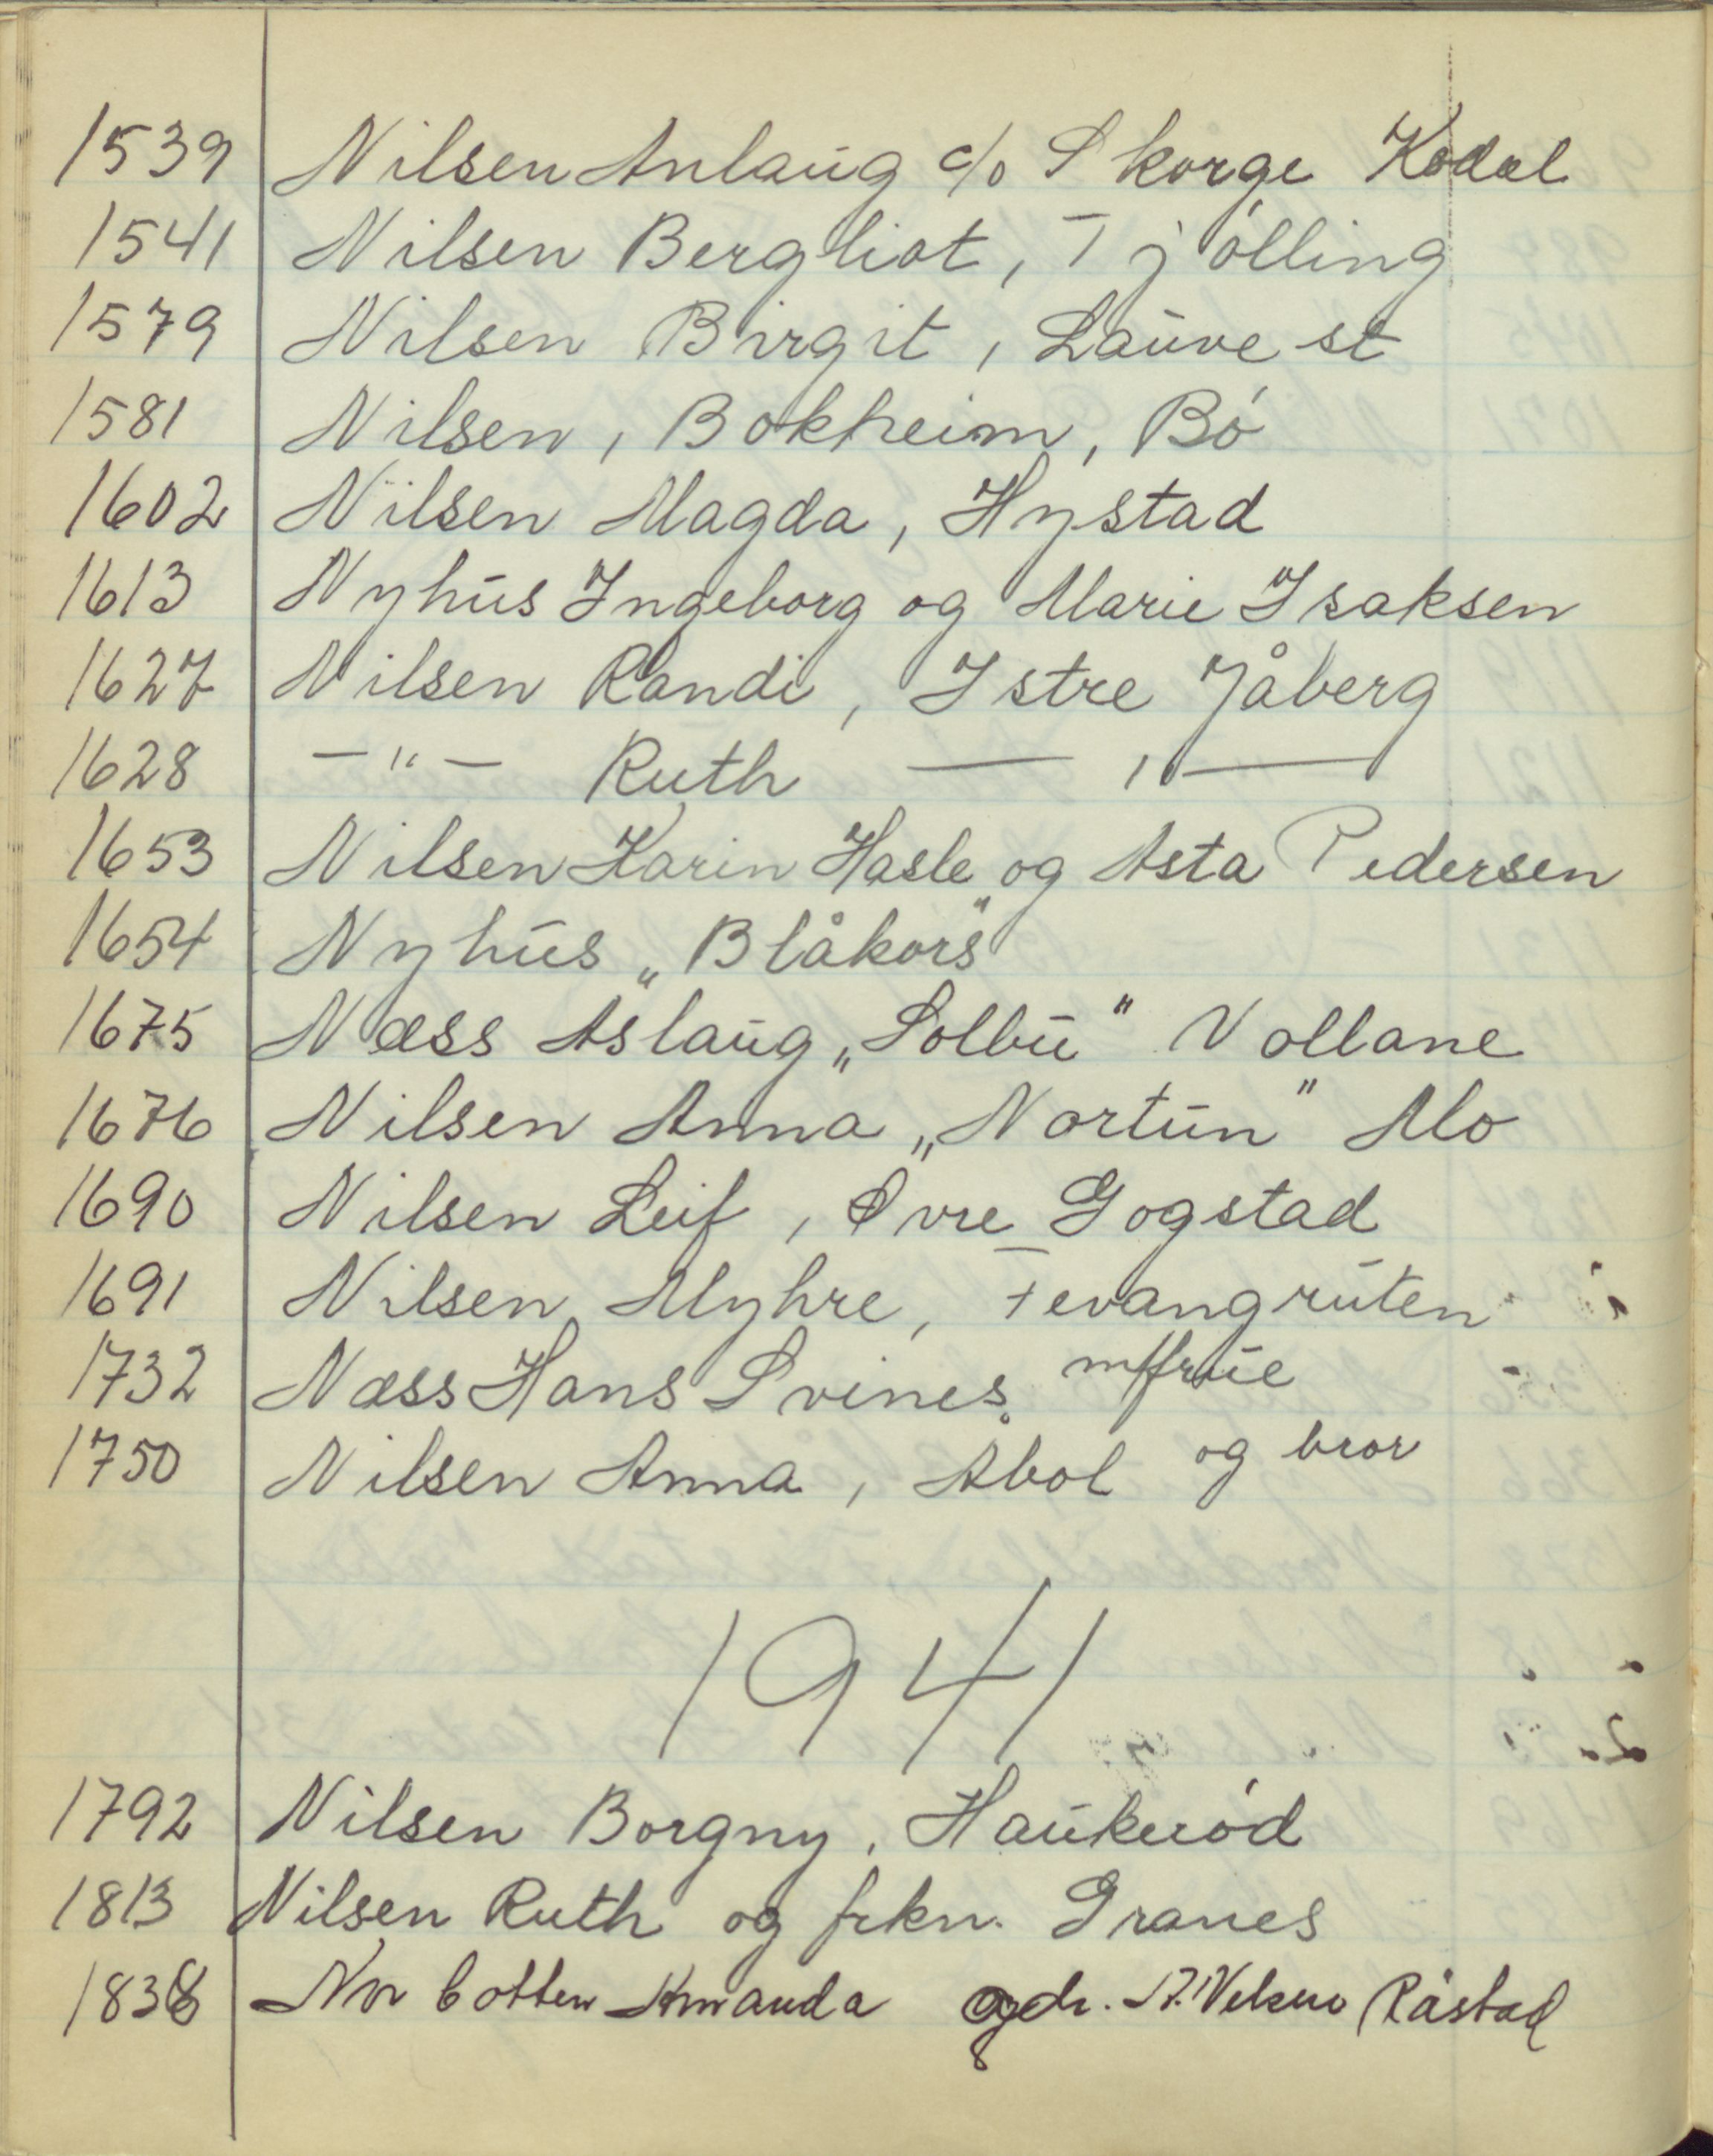 1539 Nilsen Anlaug c/o Skorge Kodal
1541 Nilsen Bergliot, Tjølling
1579 Nilsen Birgit, Lauve st
1581 Nilsen, Bokheim, Bø
1602 Nilsen Magda, Hystad
1613 Nyhus Ingeborg og Marie Isaksen
1627 Nilsen Randi, Istre Jåberg
1628 —"— Ruth — " —
1653 Nilsen Karin Hasle og Asta Pedersen
1654 Nyhus „Blåkors"
1675 Næss Aslaug „Solbu" Vollane
1676 Nilsen Anna „Nortun" Mo
1690 Nilsen Leif, Øvre Gogstad
1691 Nilsen Myhre, Fevangruten
1732 Næss Hans Svines. m/frue
1750 Nilsen Anna, Åbol og bror
1941
1792 Nilsen Borgny, Haukerød
1813 Nilsen Ruth og frkn. Granes
1838 Amanda Råstad